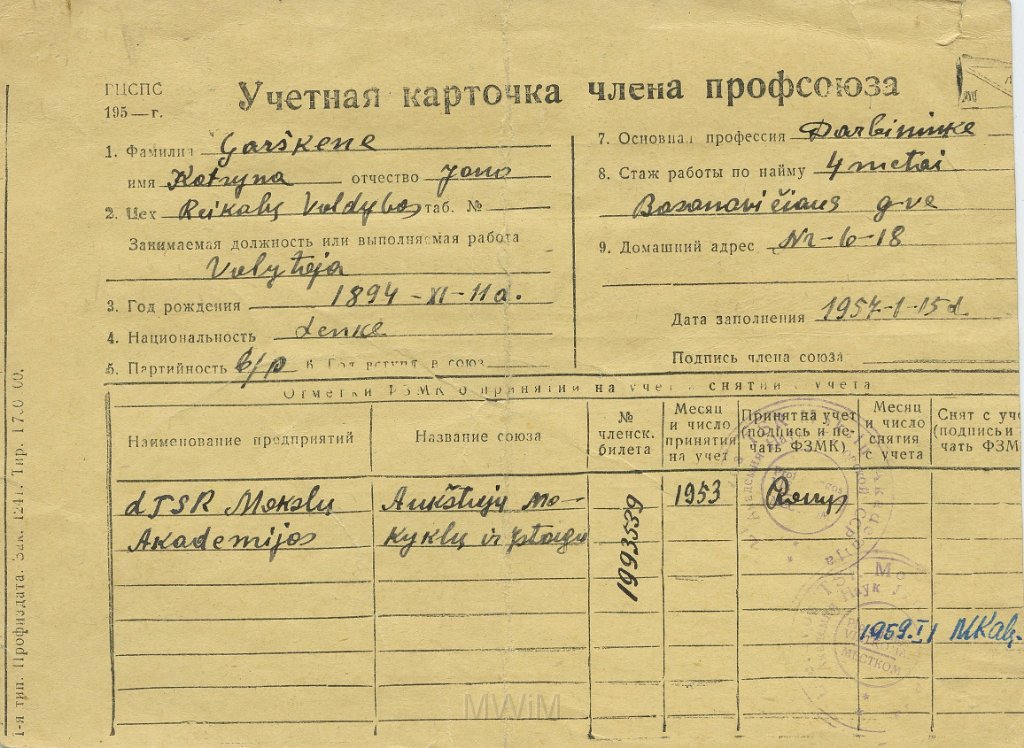 ГЦСПС
195— г.
Учетная карточка члена профсоюза
1. Фамилия Garškene
имя Katryna отчество Jono
2. Цех Reikalų Valdybos таб. №
Занимаемая должность или выполняемая работа
Valytoja
3. Год рождения 1894-XI-11 d.
4. Национальность lenkė
5. Партийность b/p 6. Год вступл. в союз
7. Основная профессия Darbininke
8. Стаж работы по найму 4 metai
Basanavičiaus g-ve
9. Домашний адрес Nr-6-18
Дата заполнения 1957-I-15 d.
Подпись члена союза
Отметки ФЗМК о принятии на учет и снятии с учета
Наименование предприятий
Название союза
№ членск. билета
Месяц и число принятия на учет
Принят на учет (подпись и печать ФЗМК)
Месяц и число снятия с учета
Снят с уче (подпись и чать ФЗМ
LTSR Mokslų Aukštųjų Mo- 1993539 1953
Akademijos kyklų ir įstaigų
1959.I
МЕСТКОМ
1-я тип. Профиздата. Зак. 1241. Тир. 17.0 00.
MWiM